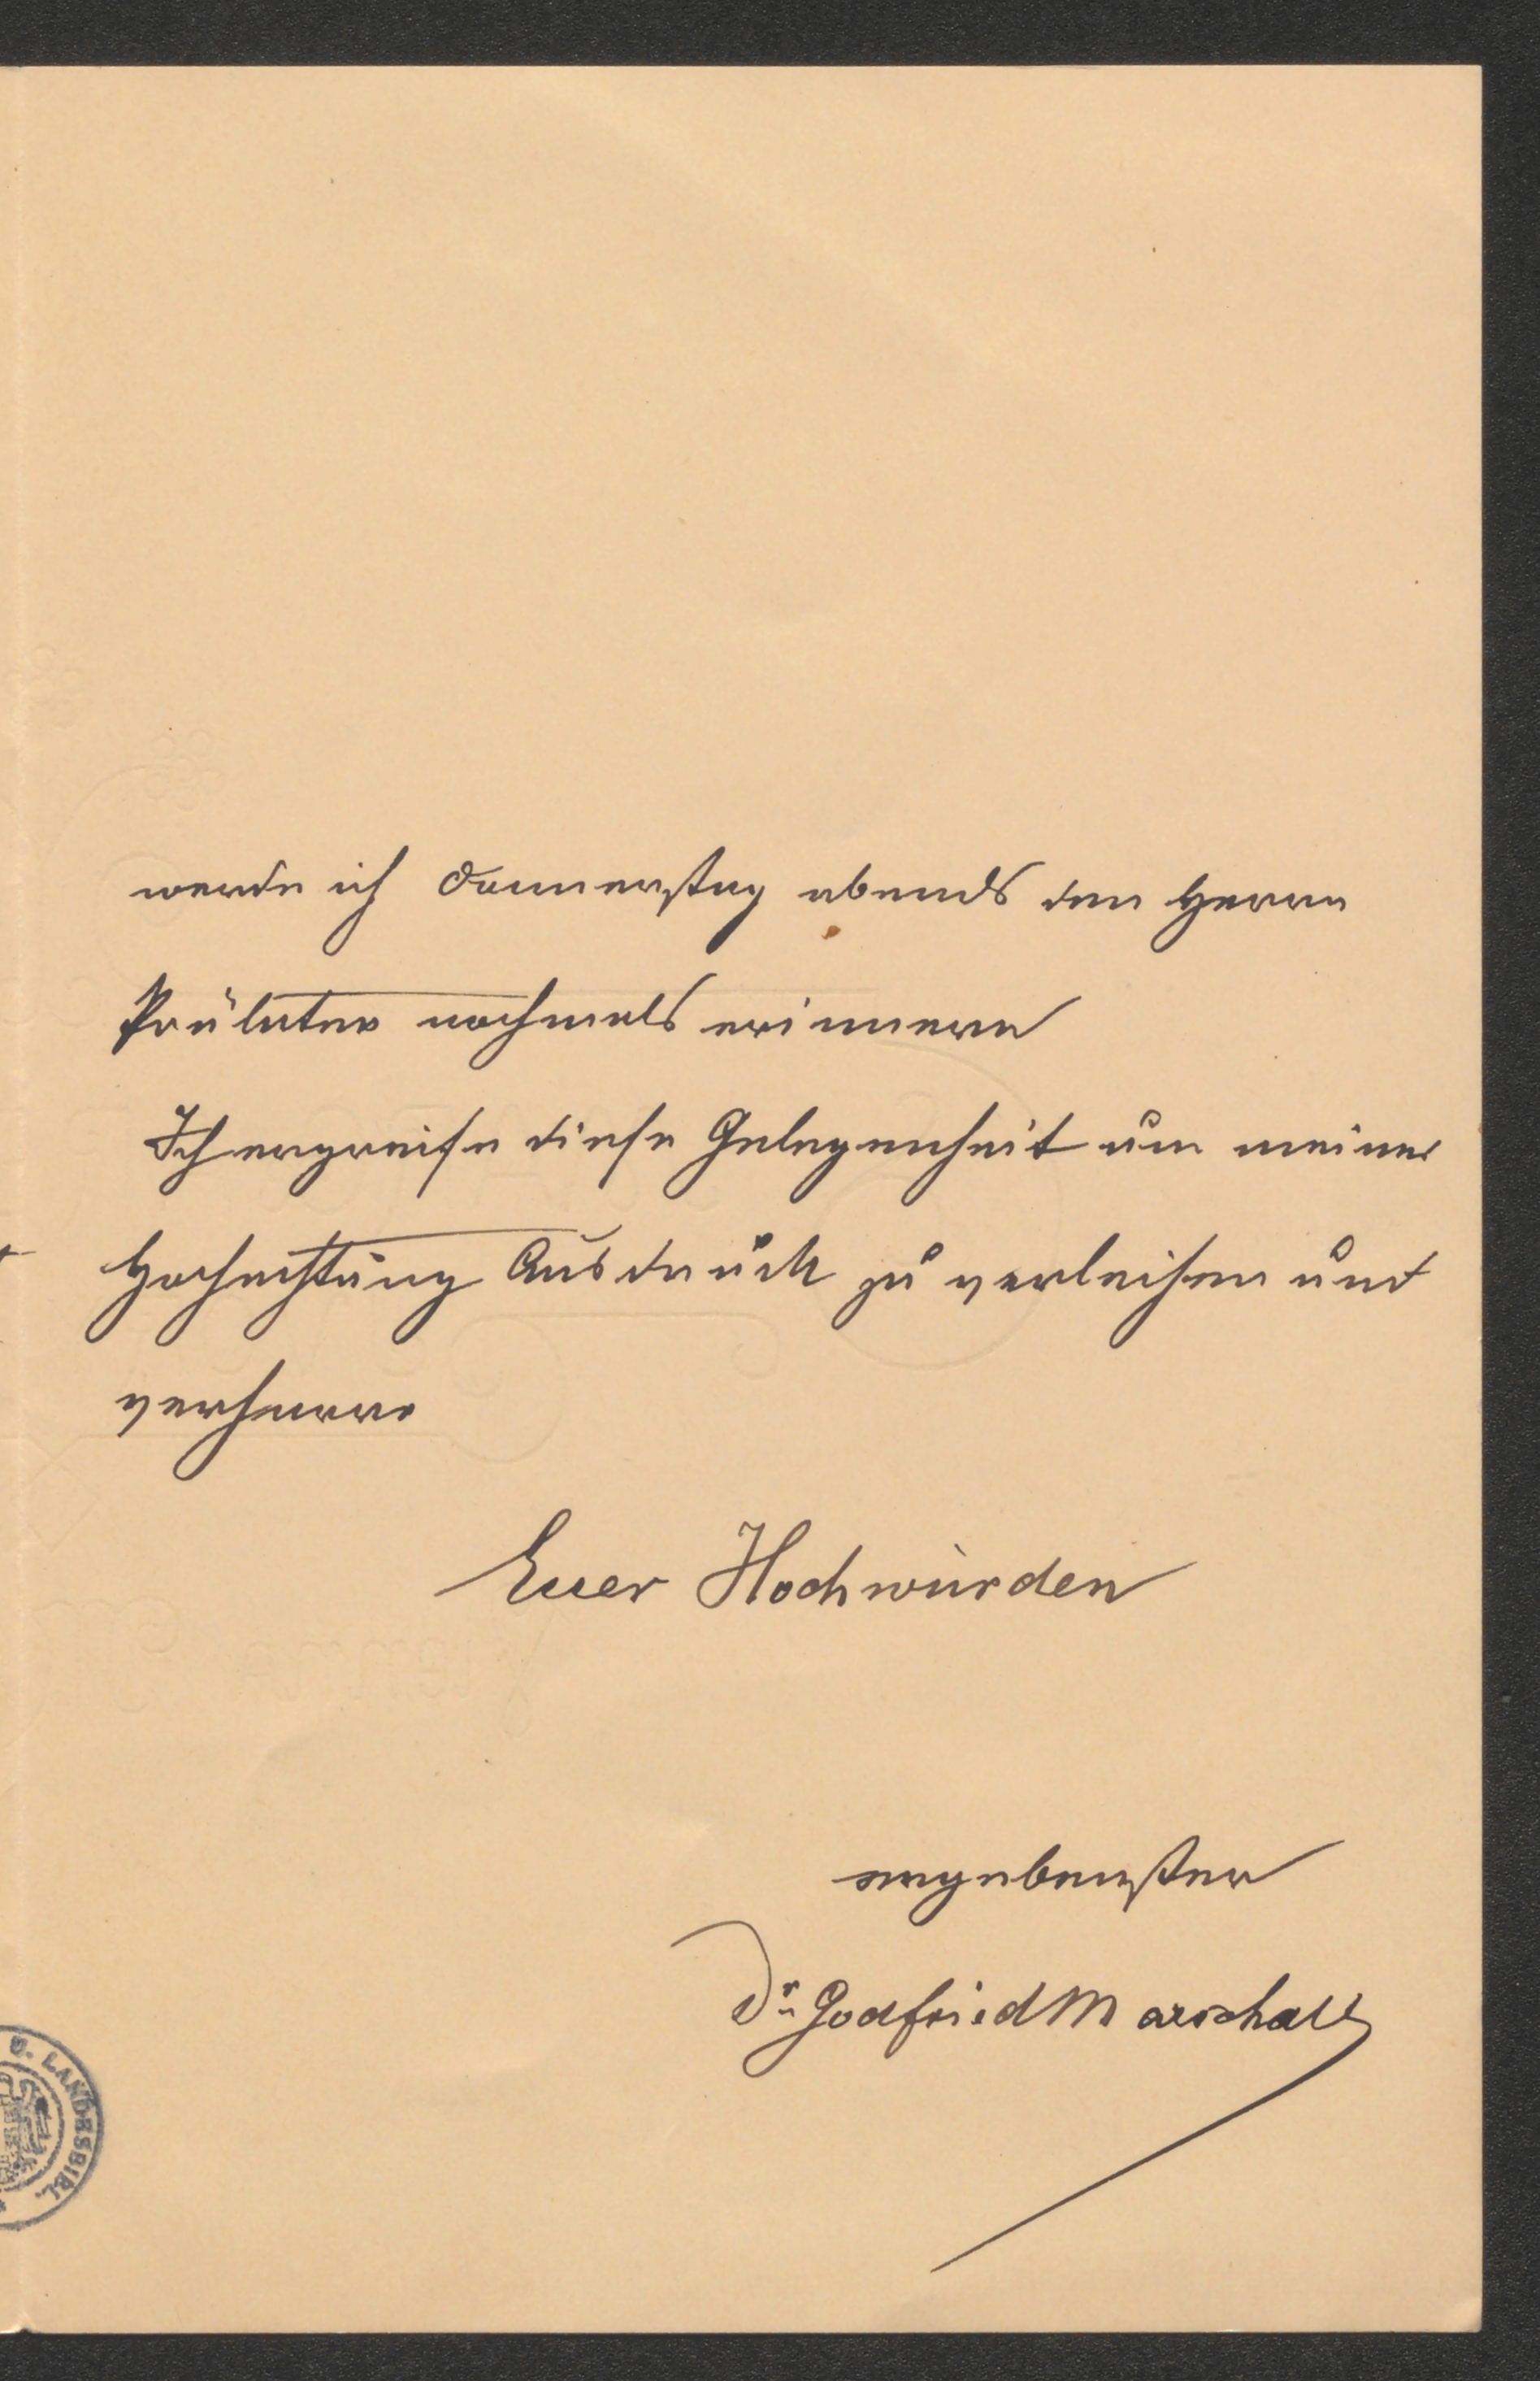 werde ich Donnerstag abends den Herrn
Prälaten nochmals erinnern
Ich ergreife diese Gelegenheit um meiner
Hochachtung Ausdruck zu verleihen und
verharre
Euer Hochwürden
ergebenster
Dr. Godfried Marschall
U. LANDESBIBL.